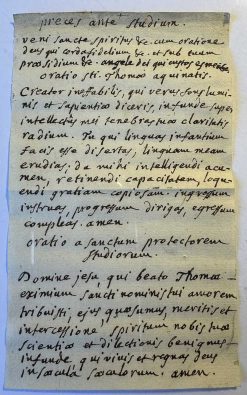 preces ante studium.
veni sancte spiritus &c. cum oratione
deus qui corda fidelium &c et sub tuum
præsidium &c. angele dei qui custos es mei &c.
oratio sti. Thomæ aquinatis.
Creator inefabilis, qui verus fons lumi-
nis et sapientiæ diceris, infunde super
intellectus mei tenebras tuæ claritatis
radium. Tu qui linguas infantium
facis esse disertas, linguam meam
erudias, da mihi intelligendi acu-
men, retinendi capacitatem, loqu-
endi gratiam copiosam. ingressum
instruas, progressum dirigas, egressum
compleas. amen.
oratio a sanctum protectorem
studiorum.
Domine jesu, qui beato Thomæ
eximium sancti nominis tui amorem
tribuisti, ejus quæsumus, meritis et
intercessione, spiritum nobis tuæ
scientiæ et dilectionis benignus
infunde qui vivis et regnas deus
in sæcula sæculorum. amen.